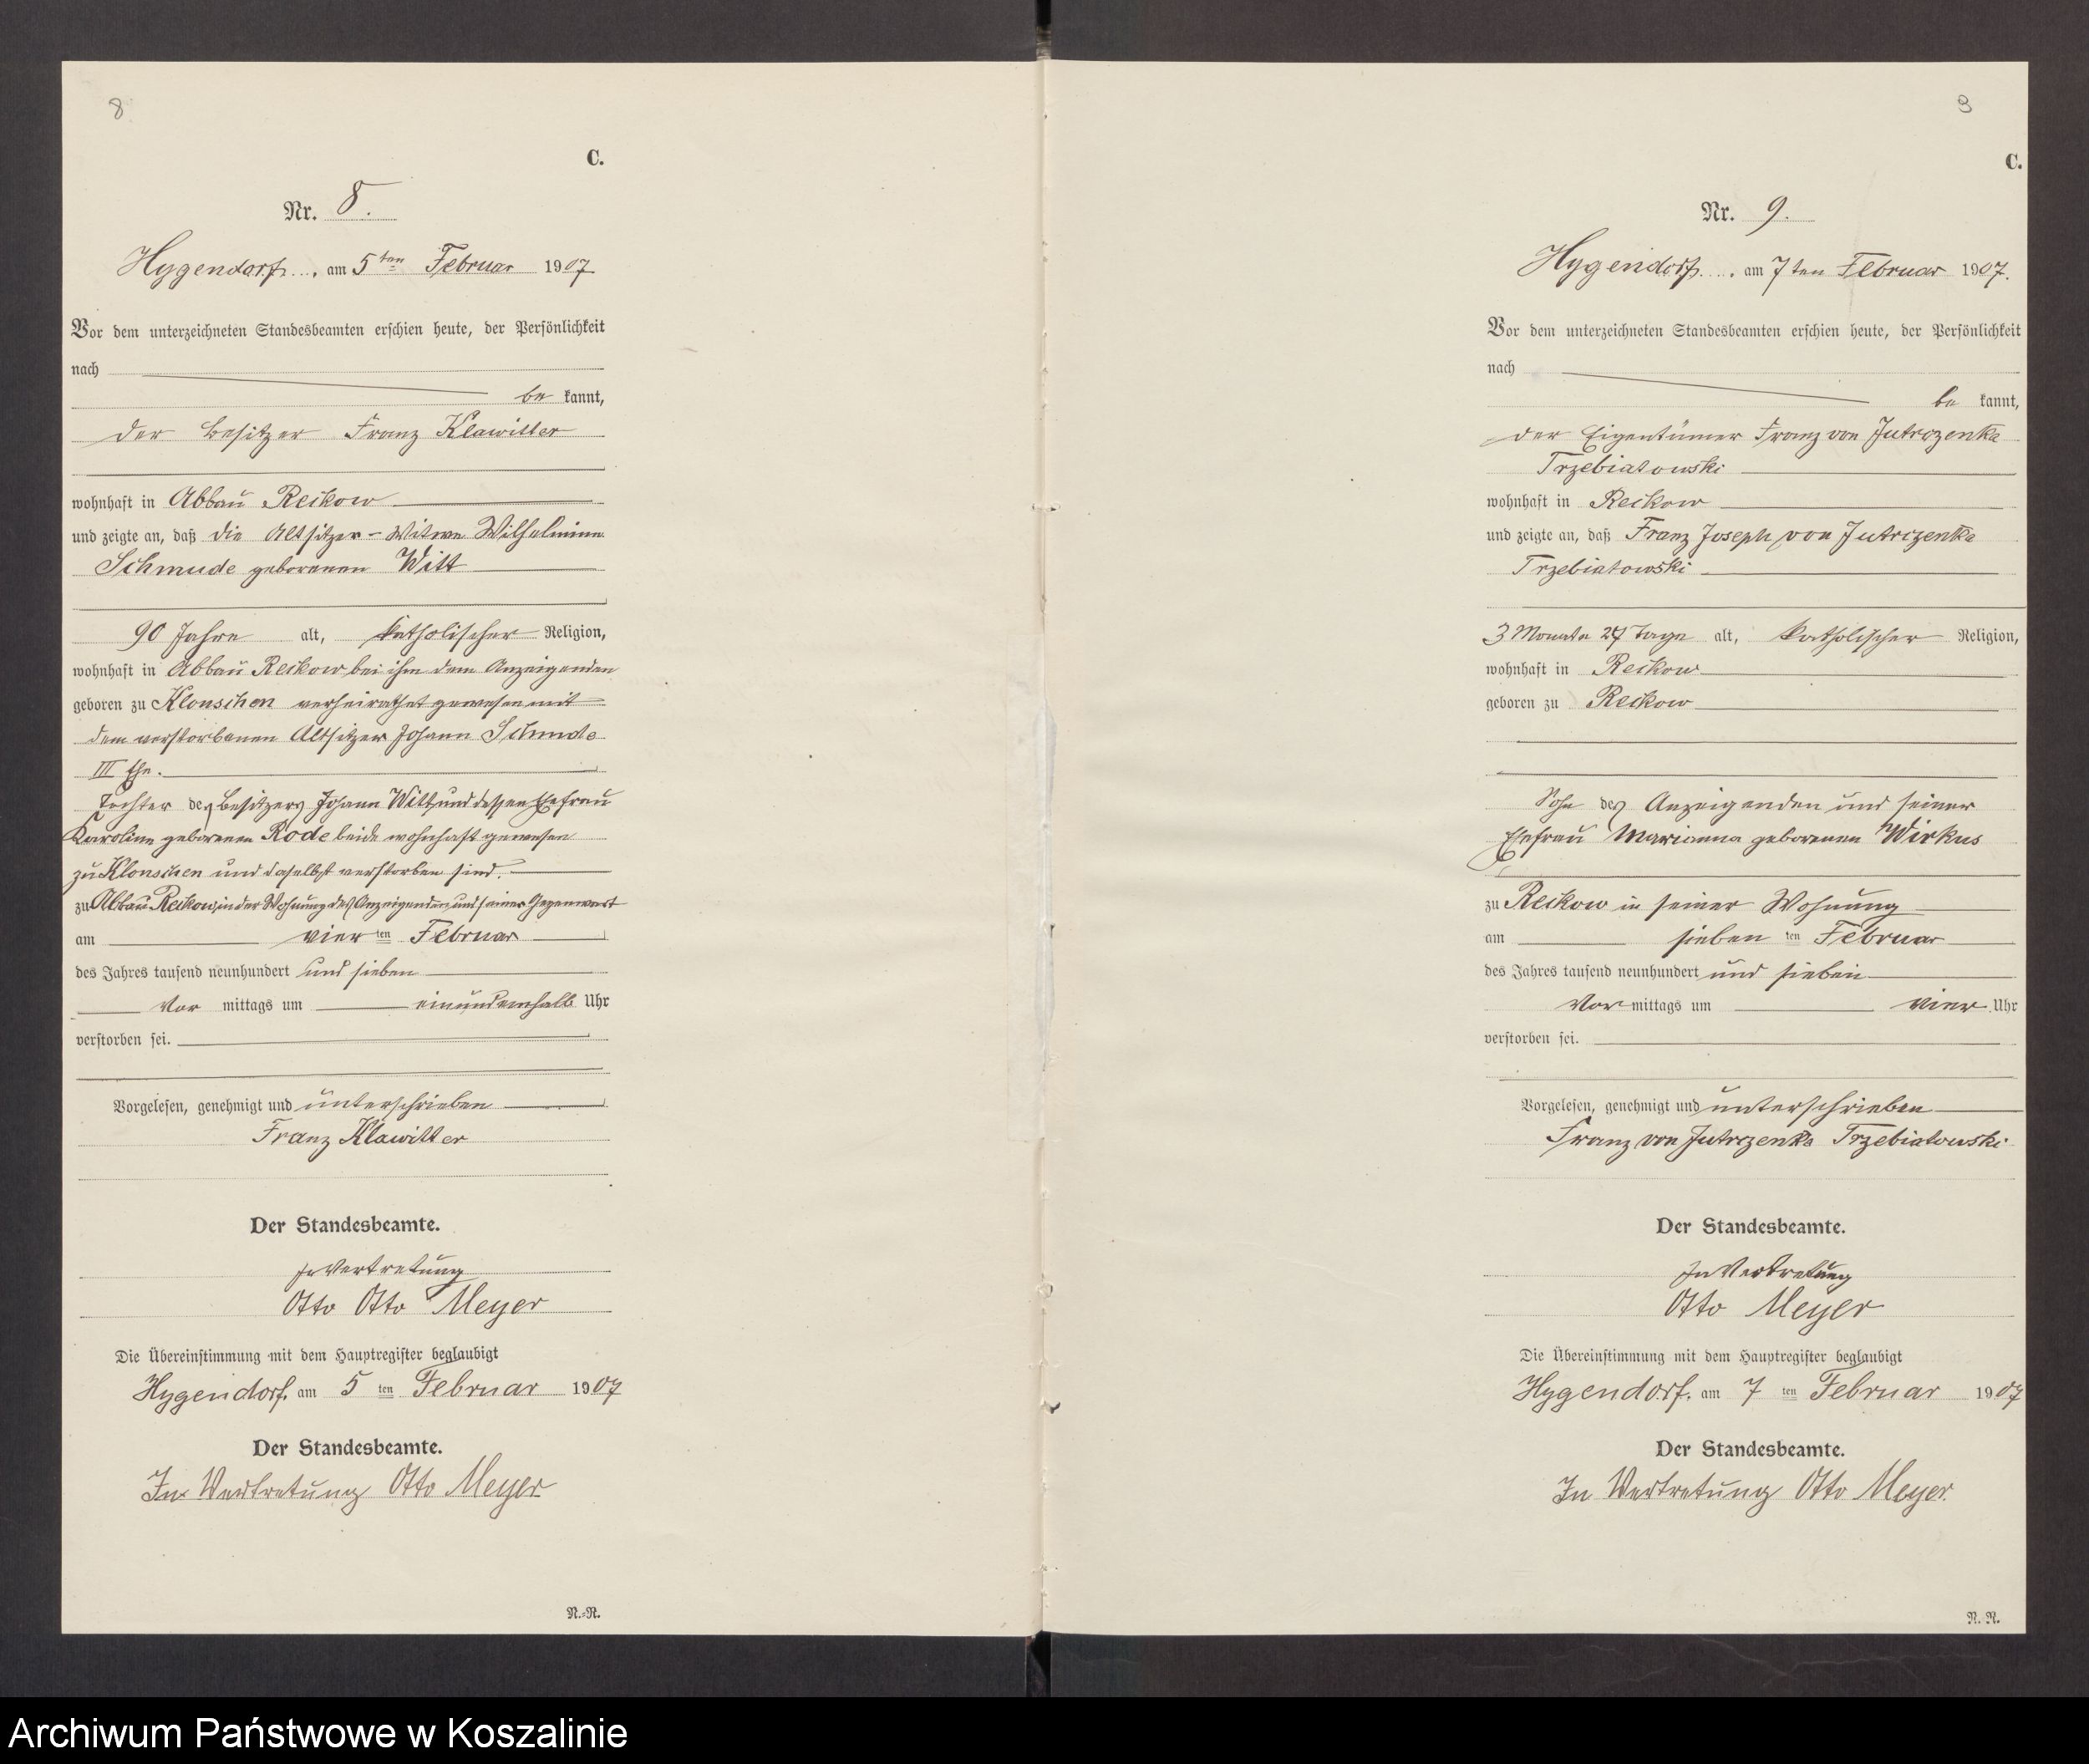 8.
C.
Nr. 8.
Hygendorf, am 5ten Februar 1907
Vor dem unterzeichneten Standesbeamten erschien heute, der Persönlichkeit
nach
be kannt,
der Besitzer Franz Klawitter
wohnhaft in Abbau Reckow
und zeigte an, daß die Altsitzer-Witwe Wilhelmine
Schmude geborenen Witt
90 Jahre alt, katholischer Religion,
wohnhaft in Abbau Reckow bei ihm dem Anzeigenden
geboren zu Klonschen verheirathet gewesen mit
dem verstorbenen Altsitzer Johann Schmude
III Ehe.
Tochter des Besitzers Johann Witt und dessen Ehefrau
Karoline geborenen Rode beide wohnhaft gewesen
zu Klonschen und daselbst verstorben sind.
zu Abbau Reckow, in der Wohnung des Anzeigenden und seiner Gegenwart
am vier ten Februar
des Jahres tausend neunhundert und sieben
Vor mittags um einundeinhalb Uhr
verstorben sei.
Vorgelesen, genehmigt und unterschrieben
Franz Klawitter
Der Standesbeamte.
In Vertretung
Otto Otto Meyer
Die Übereinstimmung mit dem Hauptregister beglaubigt
Hygendorf. am 5 ten Februar 1907
Der Standesbeamte.
In Vertretung Otto Meyer
N.-R.
9
C.
Nr. 9.
Hygendorf, am 7ten Februar 1907.
Vor dem unterzeichneten Standesbeamten erschien heute, der Persönlichkeit
nach
be kannt,
der Eigentümer Franz von Jutrzenka
Trzebiatowski
wohnhaft in Reckow
und zeigte an, daß Franz Joseph von Jutrzenka
Trzebiatowski
3 Monate 27 Tage alt, katholischer Religion,
wohnhaft in Reckow
geboren zu Reckow
Sohn des Anzeigenden und seiner
Ehefrau Marianna geborenen Wirkus
zu Reckow in seiner Wohnung
am sieben ten Februar
des Jahres tausend neunhundert und sieben
Vor mittags um vier Uhr
verstorben sei.
Vorgelesen, genehmigt und unterschrieben
Franz von Jutrzenka Trzebiatowski
Der Standesbeamte.
In Vertretung
Otto Meyer
Die Übereinstimmung mit dem Hauptregister beglaubigt
Hygendorf. am 7 ten Februar 1907
Der Standesbeamte.
In Vertretung Otto Meyer.
N. R.
Archiwum Państwowe w Koszalinie